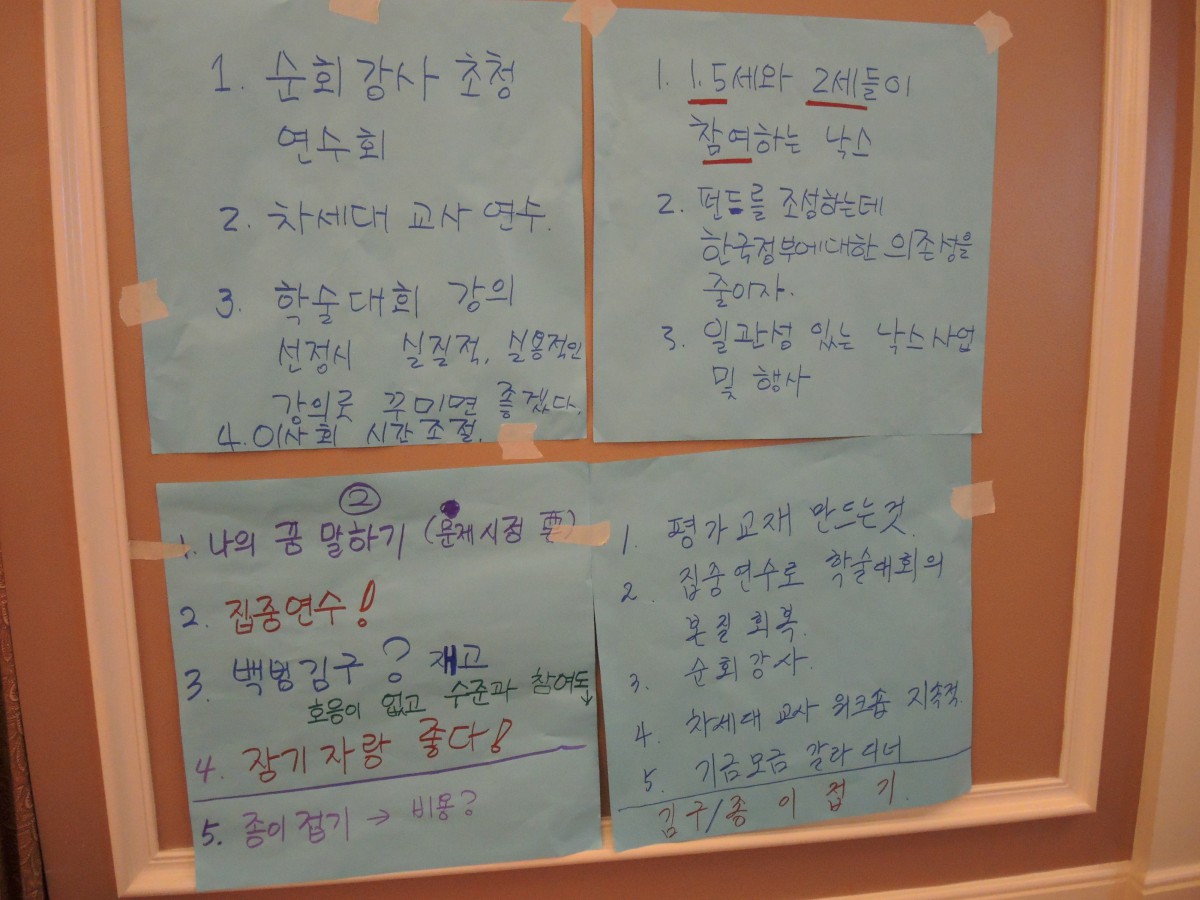 1. 순회강사 초청
연수회
2. 차세대 교사 연수.
3. 학술대회 강의
선정시 실질적, 실용적인
강의로 꾸미면 좋겠다.
4. 이사회 시간조절.
1. 1.5세와 2세들이
참여하는 낙스
2. 펀드를 조성하는데
한국정부에대한 의존성을
줄이자.
3. 일관성 있는 낙스사업
및 행사
②
1. 나의 꿈 말하기 (문제시정 要)
2. 집중연수!
3. 백범김구? 재고
호응이 없고 수준과 참여도↓
4. 장기자랑 좋다!
5. 종이접기 → 비용?
1. 평가교재 만드는것.
2. 집중연수로 학술대회의
본질 회복.
3. 순회강사.
4. 차세대 교사 워크숍 지속적.
5. 기금모금 갈라 디너
김구/종이접기.